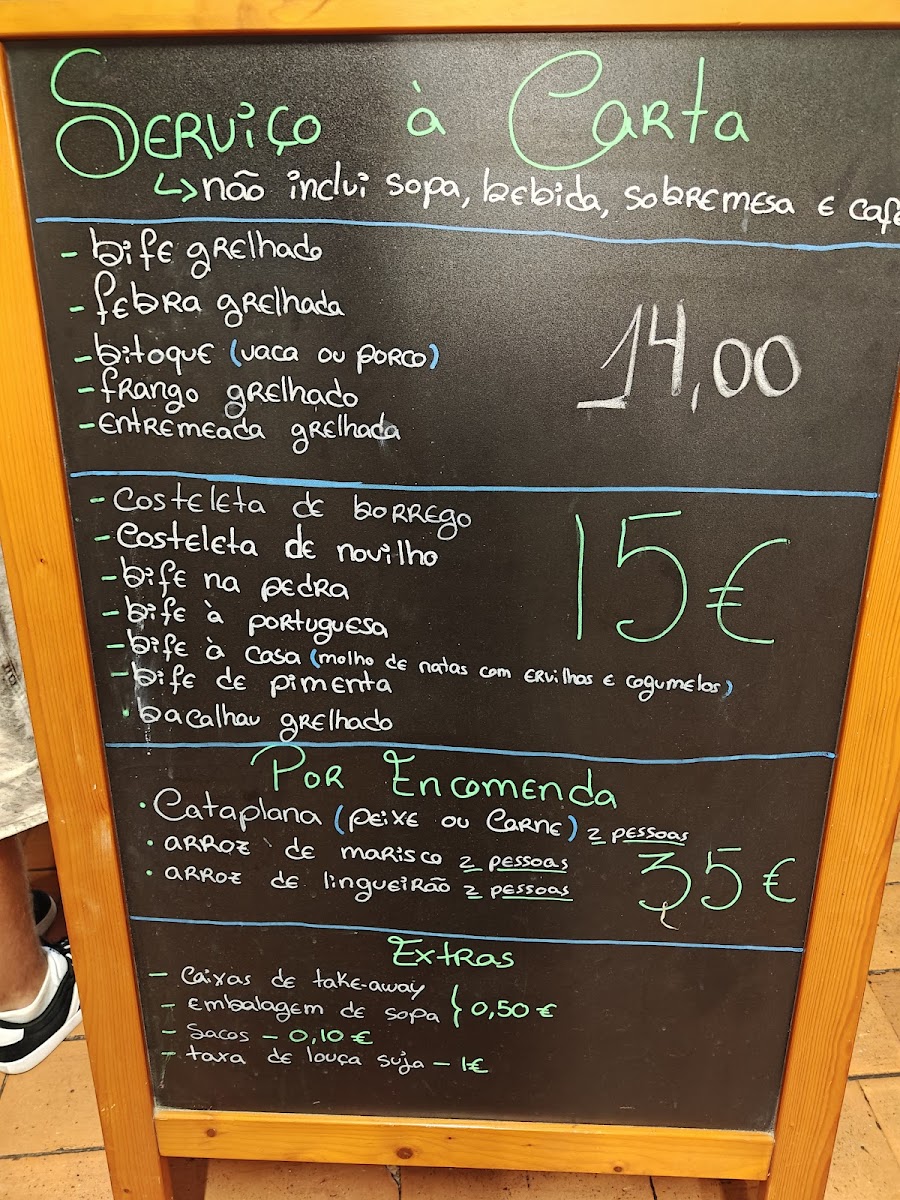 Serviço à Carta
↳ não inclui sopa, bebida, sobremesa e café
- bife grelhado
- febra grelhada
- bitoque (vaca ou porco)
- frango grelhado
- entremeada grelhada
14,00
- costeleta de borrego
- costeleta de novilho
- bife na pedra
- bife à portuguesa
- bife à casa (molho de natas com ervilhas e cogumelos)
- bife de pimenta
· bacalhau grelhado
15€
Por Encomenda
· Cataplana (peixe ou carne) 2 pessoas
· arroz de marisco 2 pessoas
· arroz de lingueirão 2 pessoas
35€
Extras
- Caixas de take-away
- embalagem de sopa } 0,50 €
- Sacos - 0,10 €
- taxa de louça suja - 1€